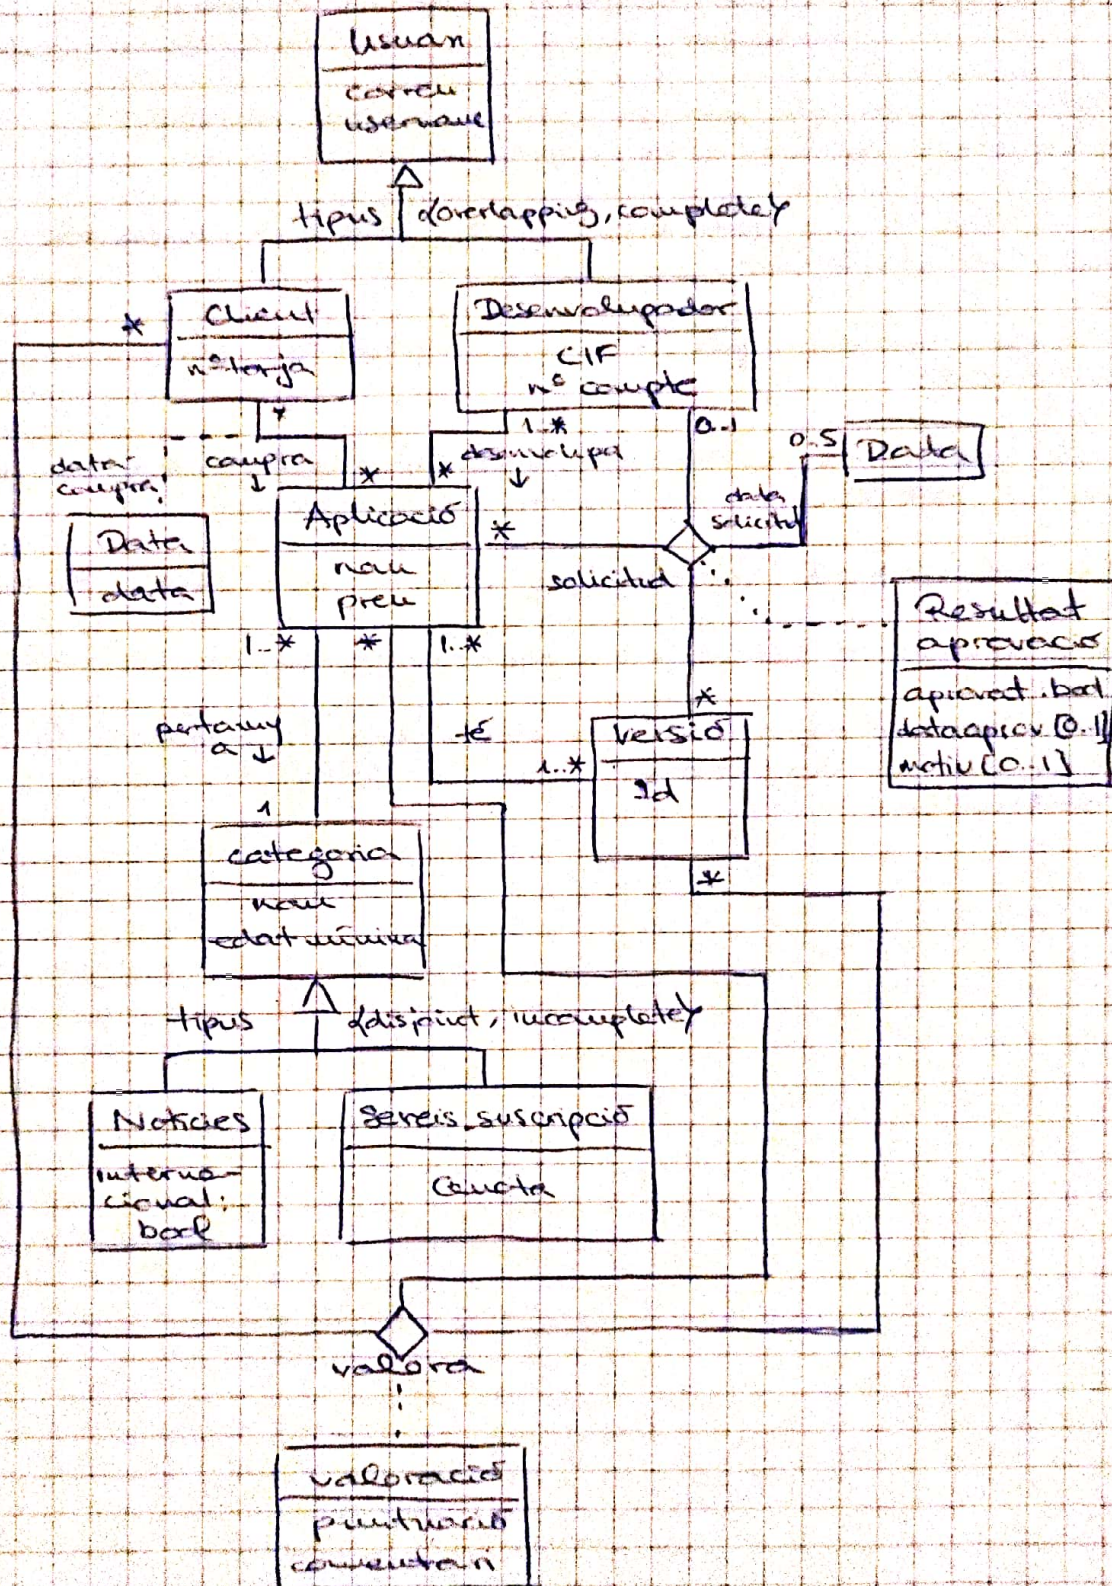 Usuari
correu
username
tipus {overlapping, complete}
Client
nº tarja
*
Desenvolupador
CIF
nº compte
*
1..*
0..1
0..5
Data
data
compra
compra
↓
*
*
desenvolupa
↓
data
solicitud
Data
data
Aplicació
nom
preu
*
solicitud
Resultat
aprovació
aprovat: bool
dataaprov [0..1]
motiu [0..1]
1..*
*
1..*
pertany
a ↓
té
1..*
*
Versió
Id
*
1
categoria
nom
edat mínima
tipus {disjoint, incomplete}
Noticies
interna-
cional:
bool
Sereis_suscripció
Cuota
valora
valoració
puntuació
comentari